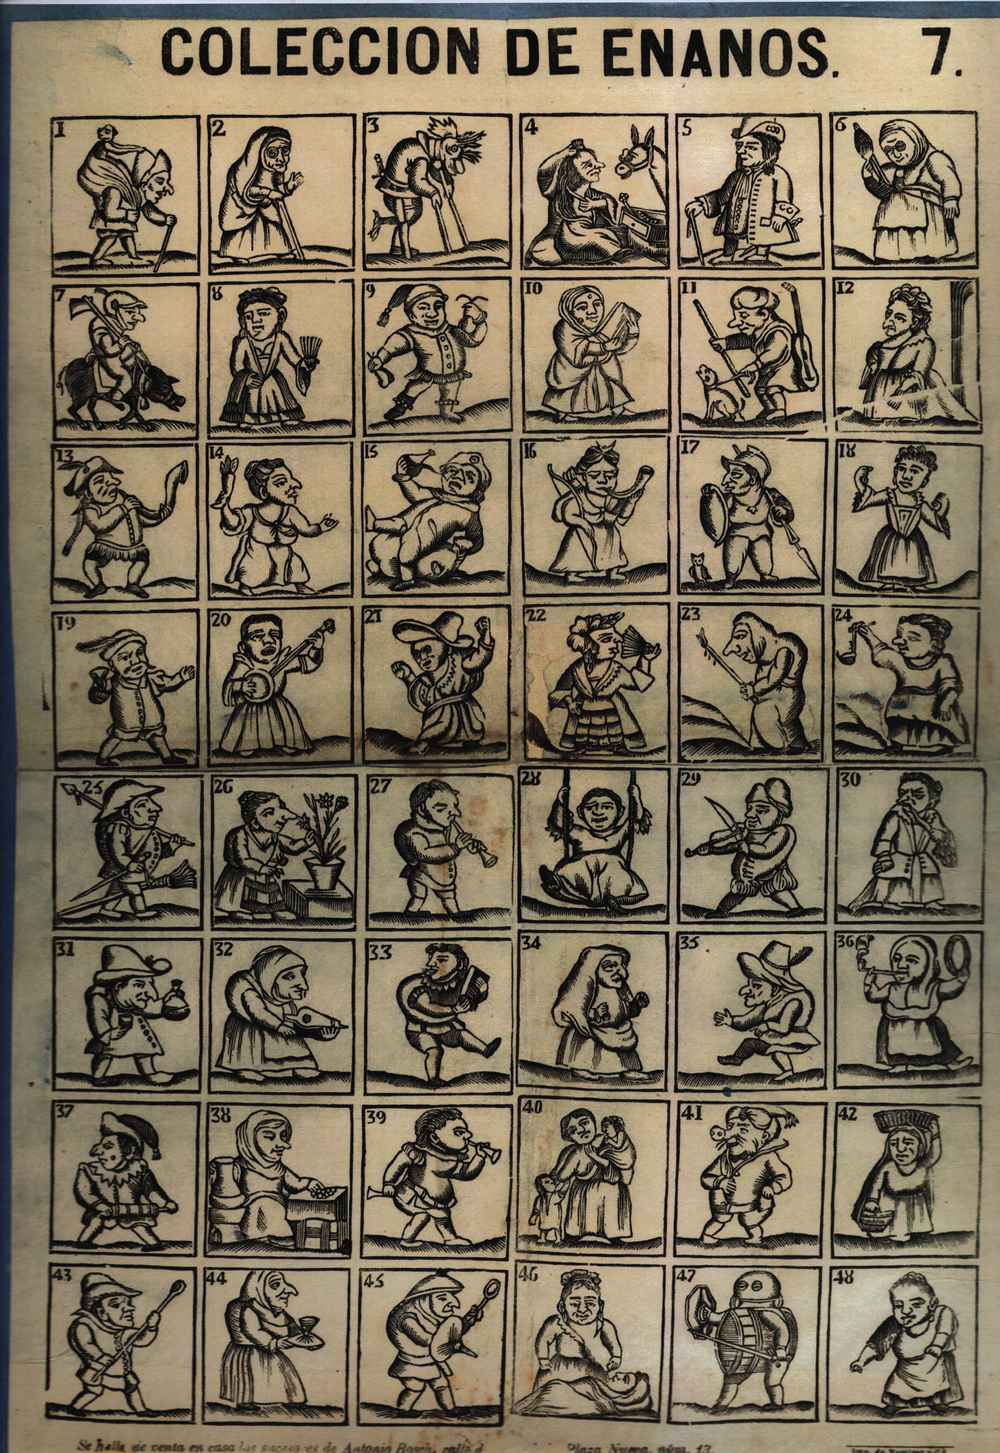 COLECCION DE ENANOS. 7.
1 2 3 4 5 6
7 8 9 10 11 12
13 14 15 16 17 18
19 20 21 22 23 24
25 26 27 28 29 30
31 32 33 34 35 36
37 38 39 40 41 42
43 44 45 46 47 48
Se halla de venta en casa los sucesores de Antonio Bosch, calle Plaza Nueva, núm. 13.